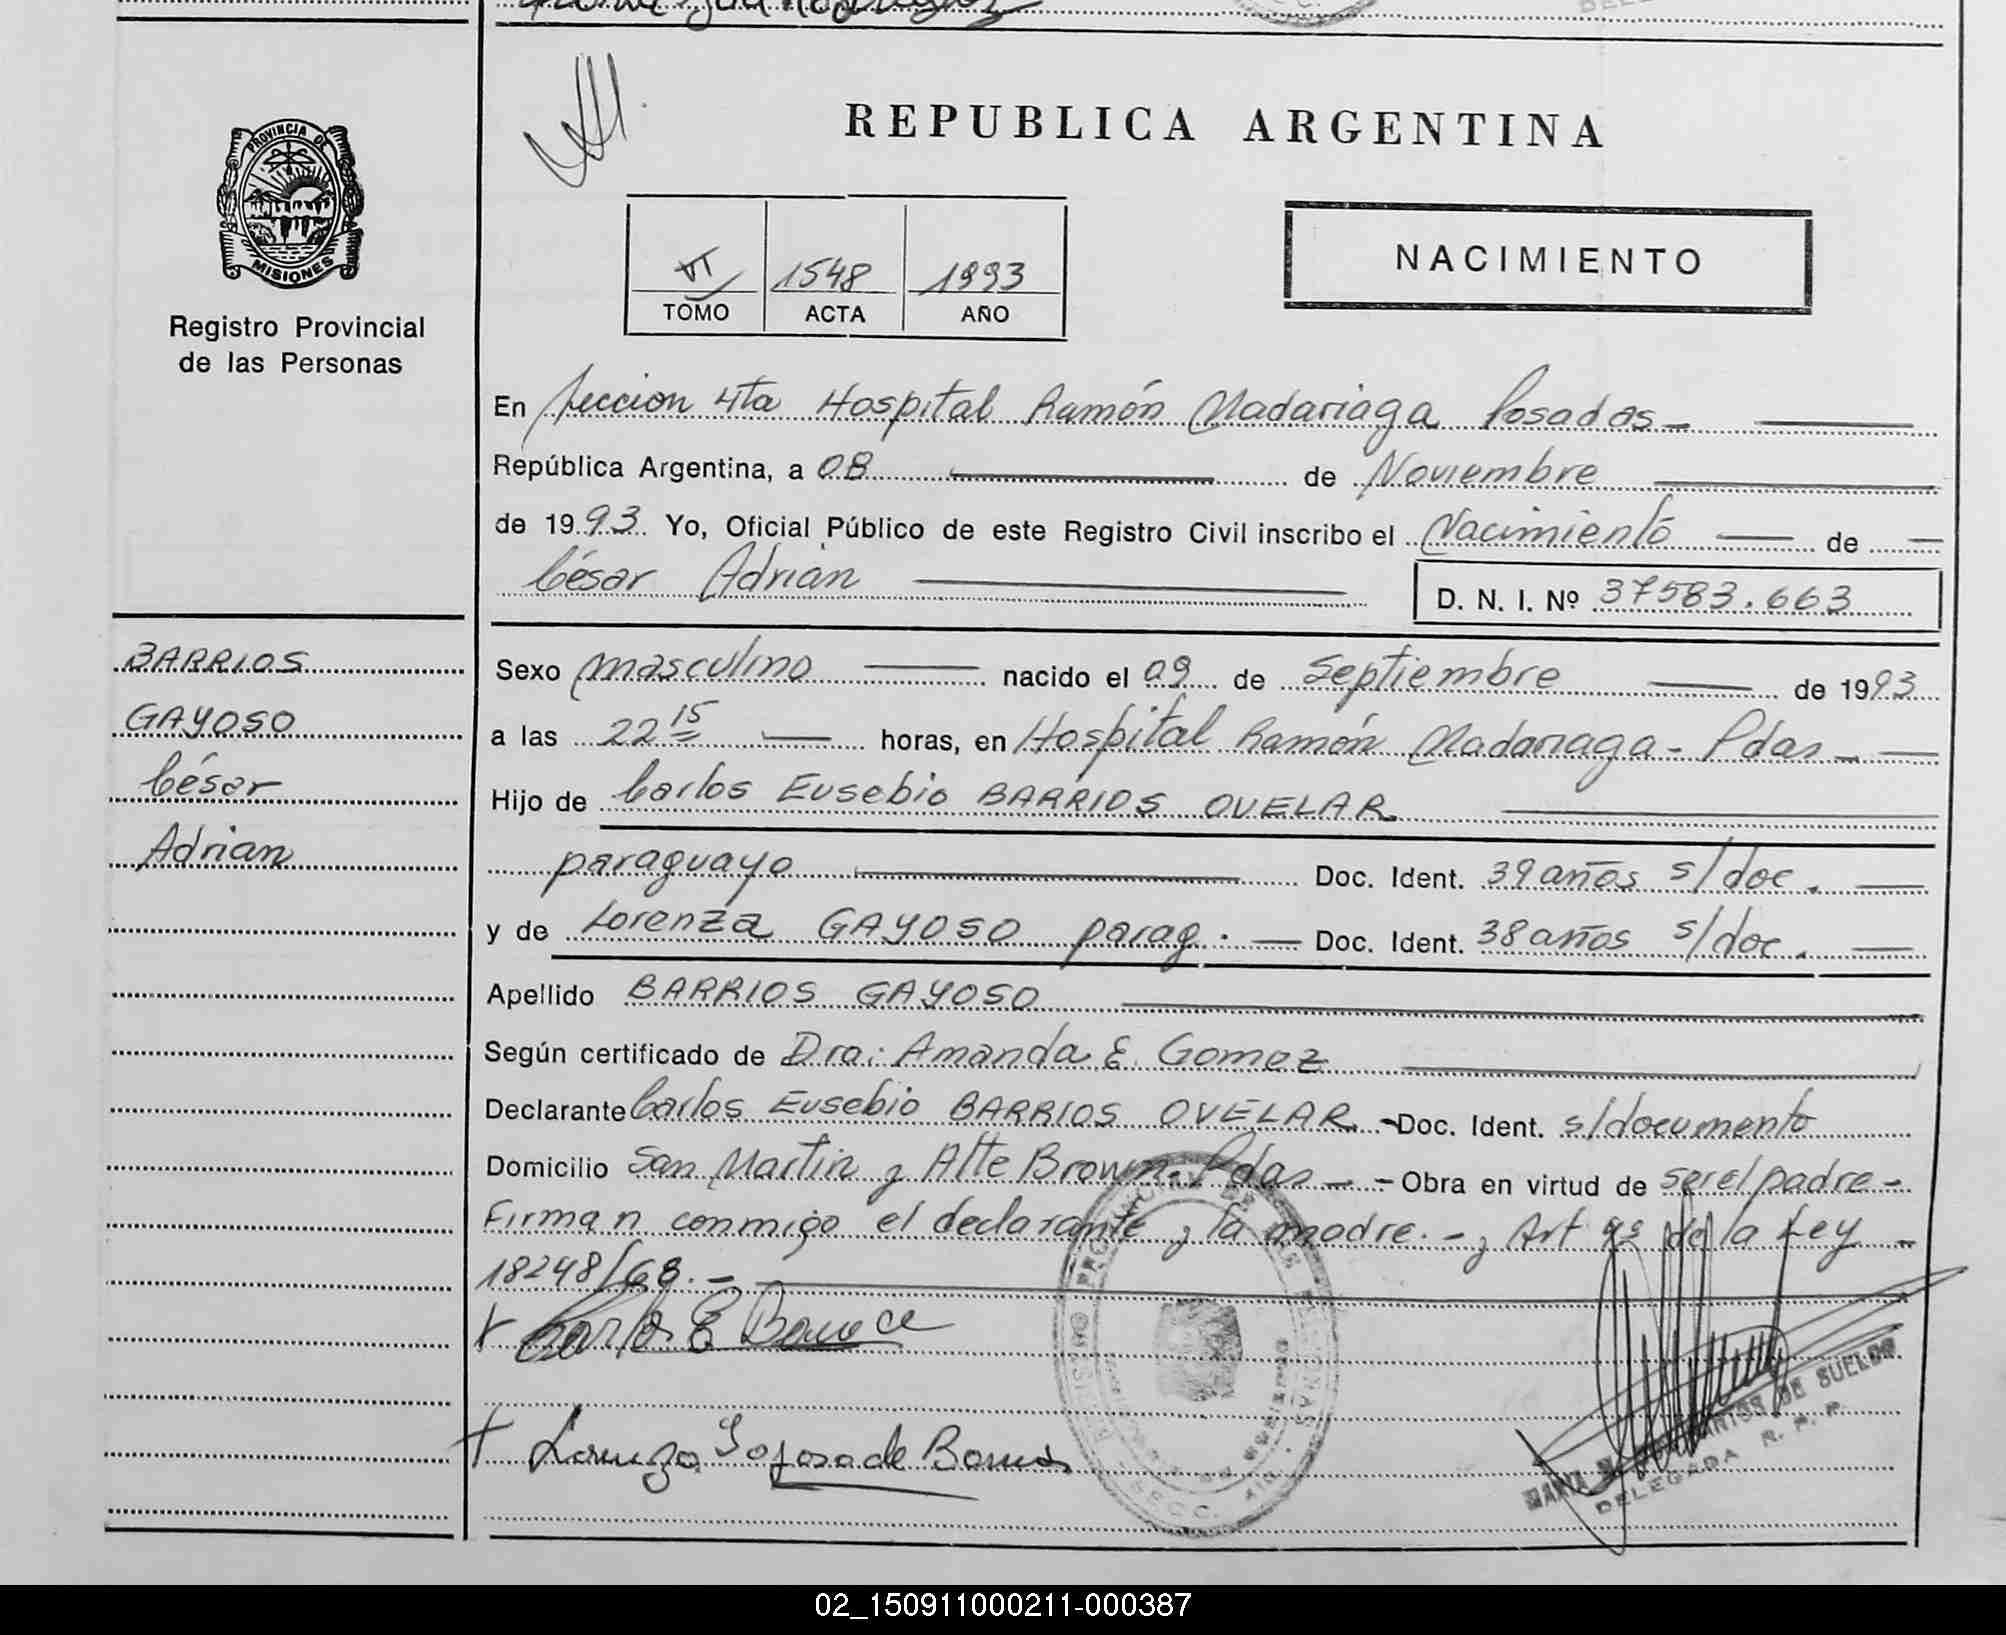 REPUBLICA ARGENTINA
PROVINCIA DE
MISIONES
Registro Provincial
de las Personas
VI 1548 1993
TOMO ACTA AÑO
NACIMIENTO
En Seccion 4ta Hospital Ramón Madariaga Posadas -
República Argentina, a 08 de Noviembre
de 1993 Yo, Oficial Público de este Registro Civil inscribo el Nacimiento de
César Adrian
D. N. I. Nº 37583.663
BARRIOS
GAYOSO
César
Adrian
Sexo masculino nacido el 09 de Septiembre de 1993
a las 22 15 horas, en Hospital Ramón Madariaga - Pdas -
Hijo de Carlos Eusebio BARRIOS OVELAR
paraguayo Doc. Ident. 39 años s/doc.
y de Lorenza GAYOSO parag. Doc. Ident. 38 años s/doc.
Apellido BARRIOS GAYOSO
Según certificado de Dra: Amanda E. Gomez
Declarante Carlos Eusebio BARRIOS OVELAR - Doc. Ident. s/documento
Domicilio San Martin y Alte Brown. Pdas - - Obra en virtud de ser el padre -
Firman conmigo el declarante y la madre. - y Art 9º de la Ley -
18248/68. -
Carlos E Barrios
Lorenza Gayoso de Barrios
DE SUELDO
DELEGADA R. P. P.
02_150911000211-000387